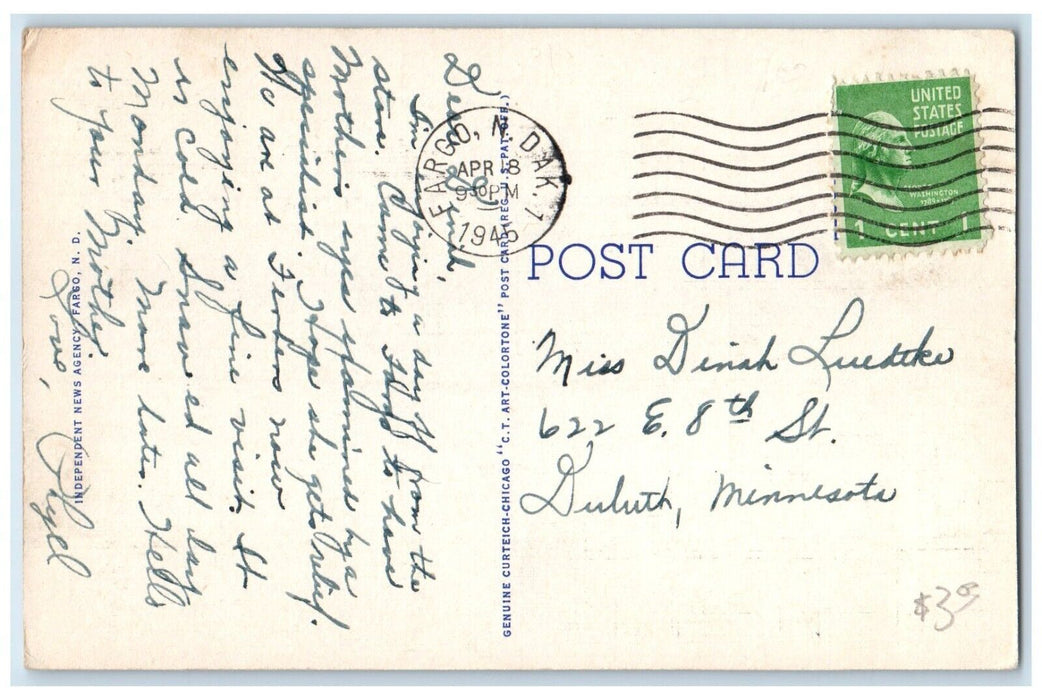 Dear Dinah,
Im enjoying a day off from the
store. Came to Fargo to have
Mothers eyes examined by a
specialist. Hope she gets relief.
We are at Ferbers now
enjoying a fine visit. It
is cold. Snowed all last
Monday. More later. Hello
to your Mother.
Love,
INDEPENDENT NEWS AGENCY, FARGO, N. D.
GENUINE CURTEICH-CHICAGO "C.T. ART-COLORTONE" POST CARD (REG. U.S. PAT. OFF.)
FARGO, N. DAK. 1
APR 8
9 30 PM
1946
UNITED
STATES
POSTAGE
WASHINGTON
1 CENT 1
POST CARD
Miss Dinah Luedtke
622 E. 8th St.
Duluth, Minnesota
$3.00